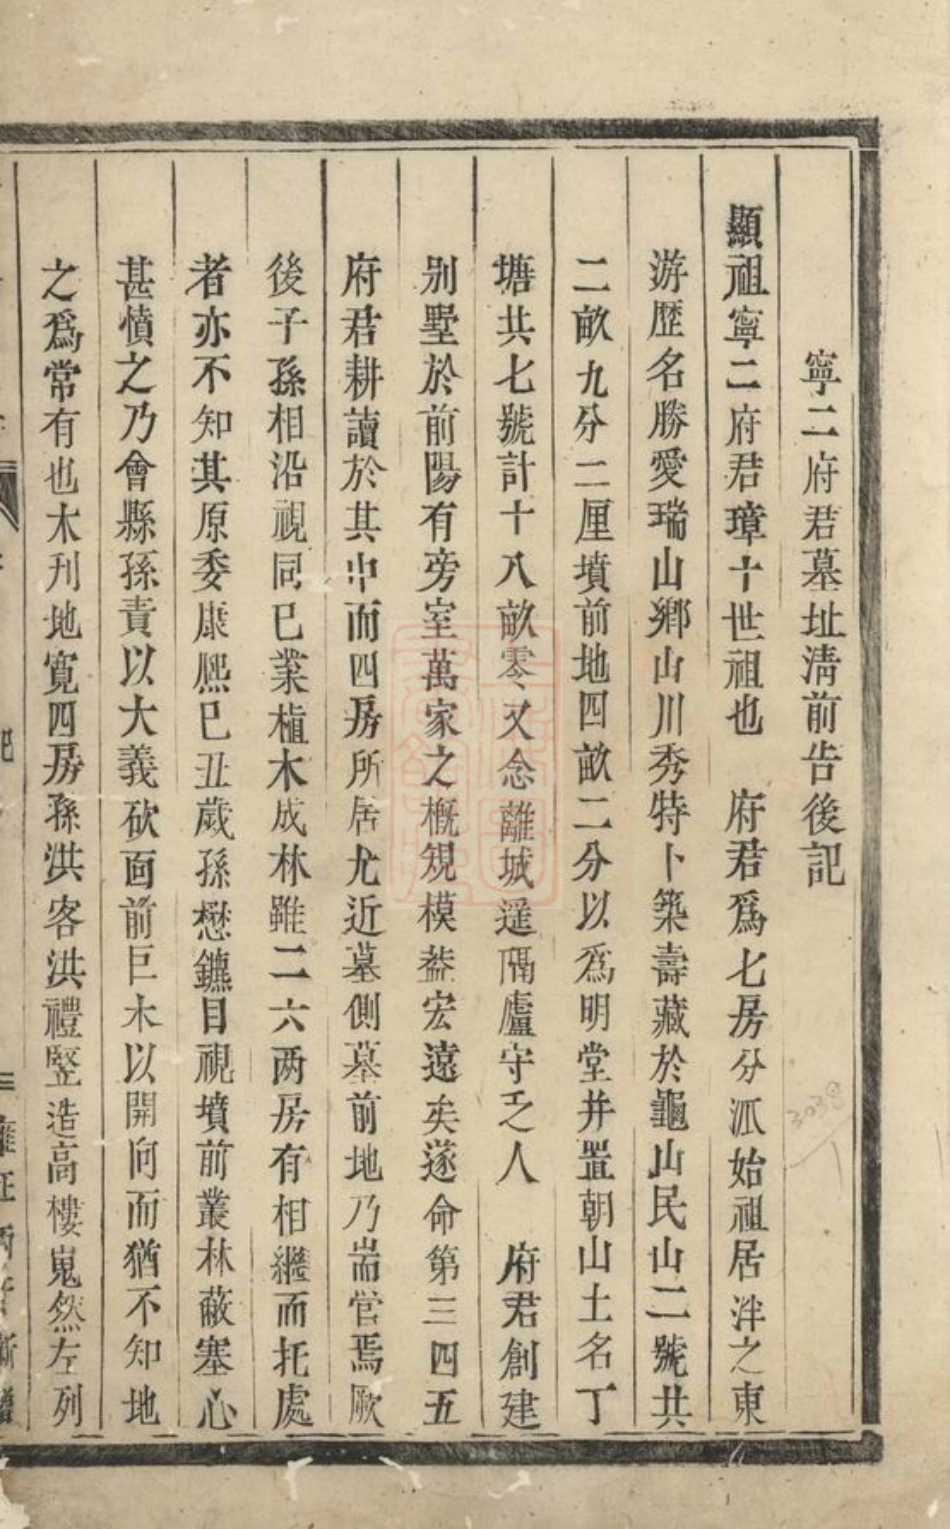 寧二府君墓址淸前告後記
顯祖寧二府君璋十世祖也　府君爲七房分派始祖居泮之東
游歷名勝愛瑞山鄉山川秀特卜築壽藏於龜山民山二號共
二畝九分二厘墳前地四畝二分以爲明堂并置朝山土名丁
塘共七號計十八畝零又念離城遥隔廬守乏人　府君創建
别墅於前陽有旁室萬家之概規模葢宏遠矣遂命第三四五
府君耕讀於其中而四房所居尤近墓側墓前地乃耑管焉厥
後子孫相沿視同已業植木成林雖二六两房有相繼而托處
者亦不知其原委康熙已丑歲孫懋鑣目視墳前叢林蔽塞心
甚憤之乃會縣孫責以大義砍面前巨木以開向而猶不知地
之爲常有也木刋地寛四房孫洪客洪禮竪造高樓嵬然左列